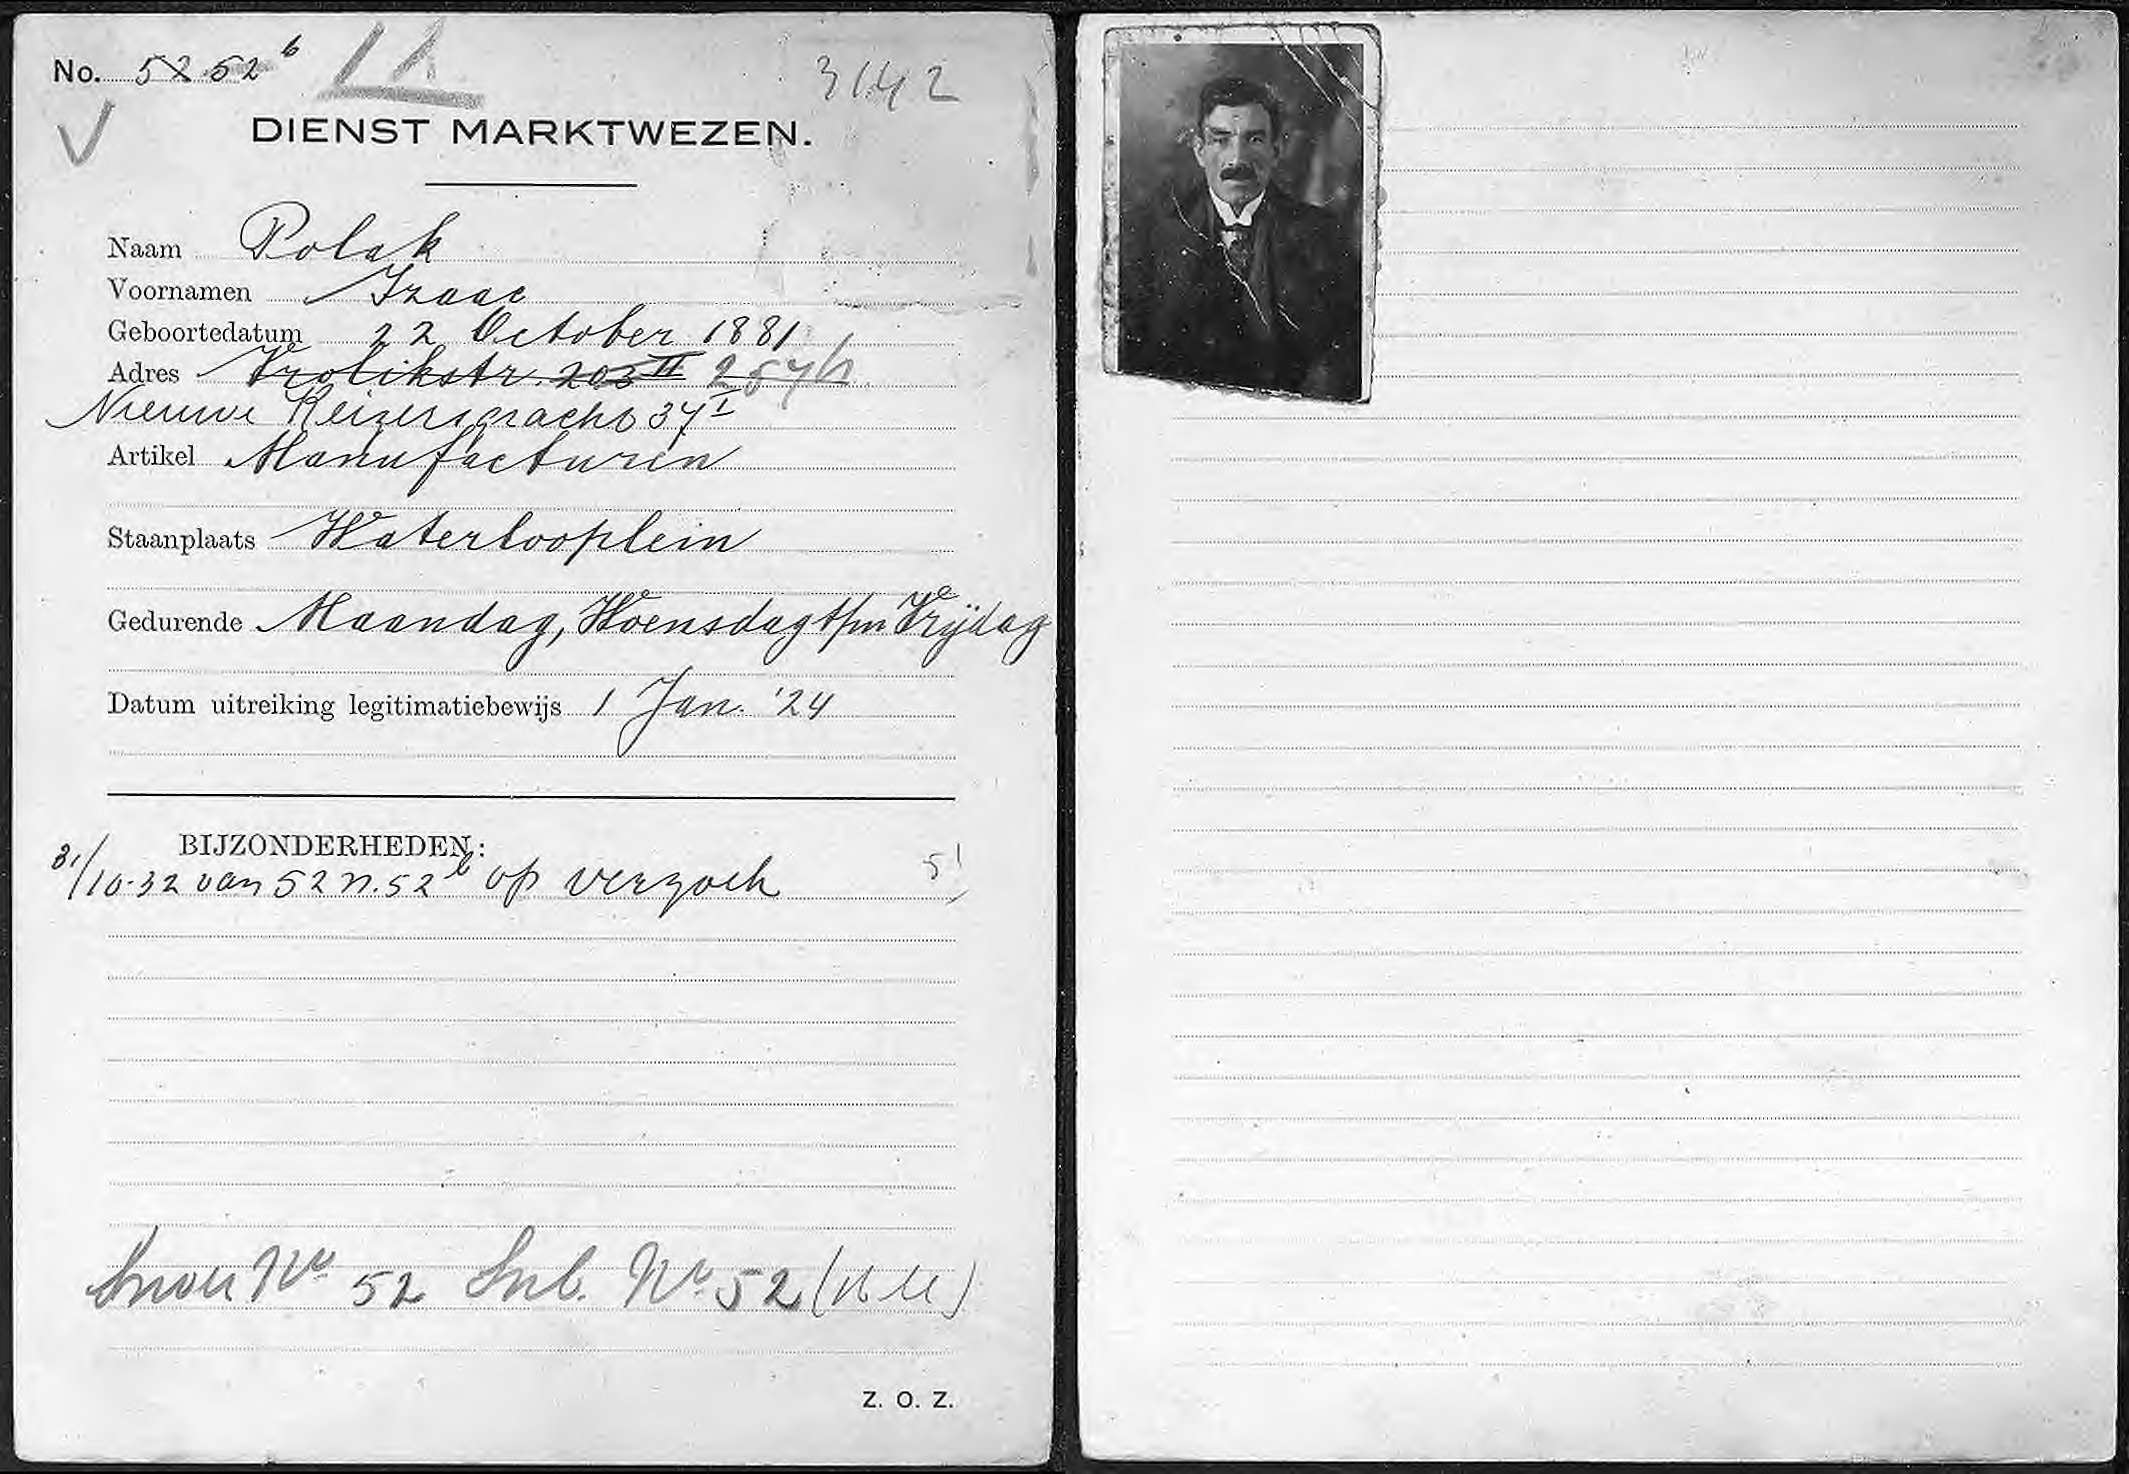 No. 52 52 b
3142
DIENST MARKTWEZEN.
Naam Polak
Voornamen Izaac
Geboortedatum 22 October 1881
Adres Vrolikstr. 203 II 257 h
Nieuwe Keizersgracht 37 I
Artikel Manufacturen
Staanplaats Waterlooplein
Gedurende Maandag, Woensdag t/m Vrijdag
Datum uitreiking legitimatiebewijs 1 Jan. '24
BIJZONDERHEDEN:
31/10-32 van 52 n. 52 b op verzoek
No. 52 No. 52
Z. O. Z.